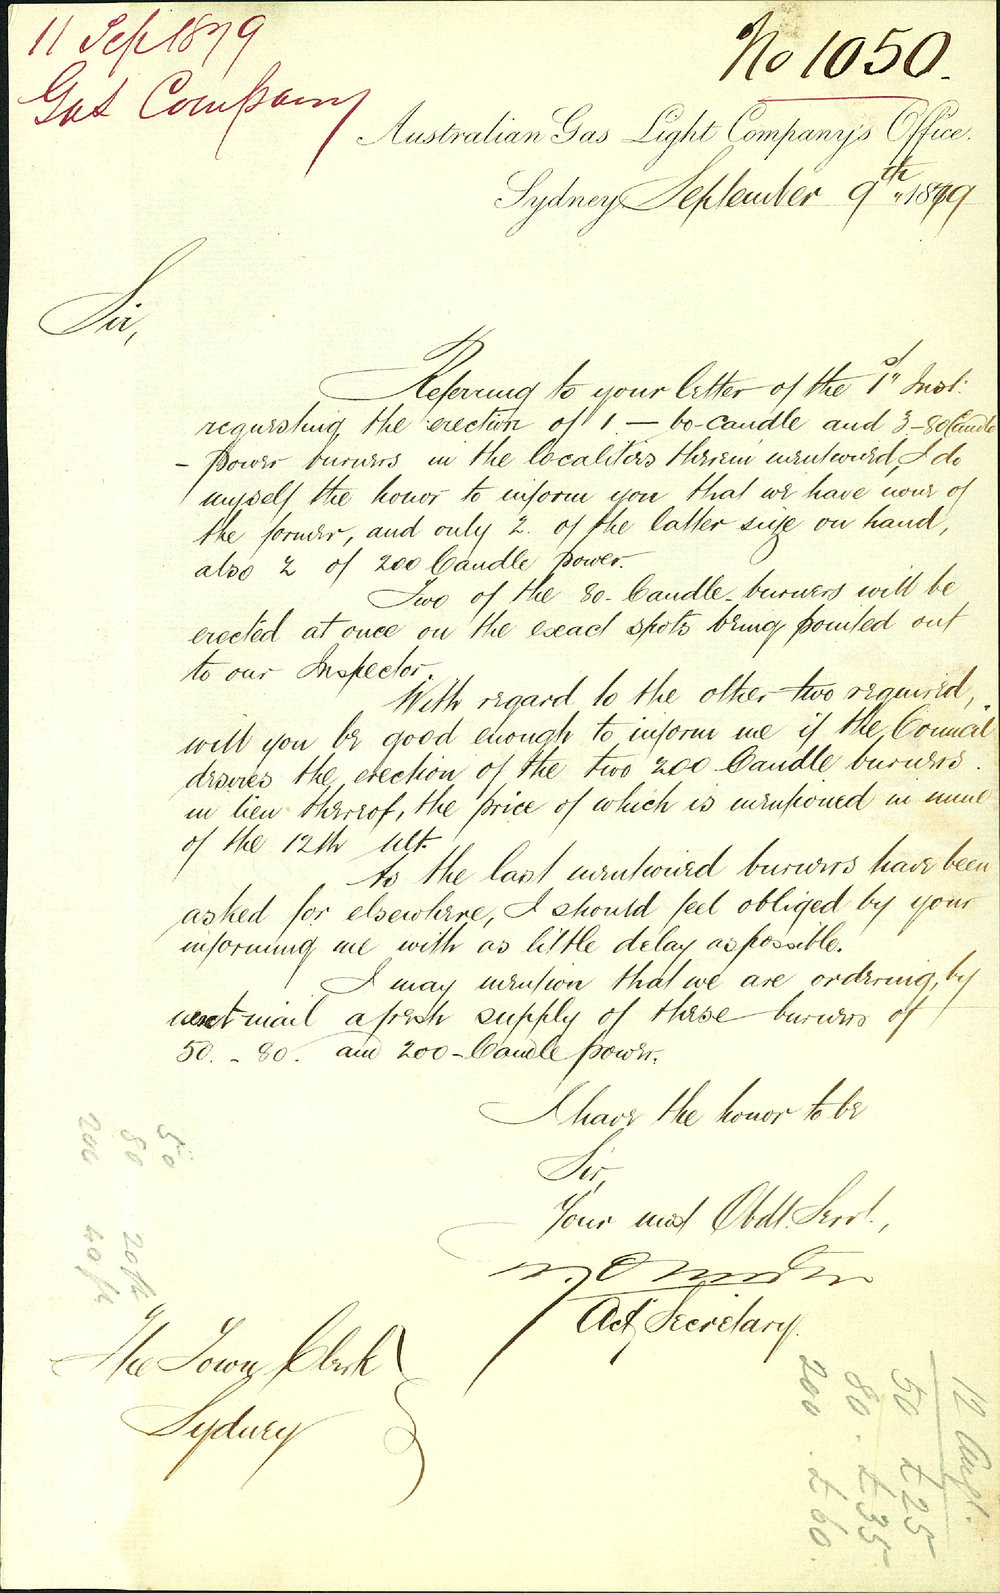 11 Sep 1879
Gas Company
No 1050.
Australian Gas Light Company's Office.
Sydney September 9th 1879
Sir,
Referring to your letter of the 1st Inst:
requesting the erection of 1 — 50-candle and 3-80 Candle
- power burners in the localities therein mentioned, I do
myself the honor to inform you that we have none of
the former, and only 2 of the latter size on hand,
also 2 of 200 Candle power.
Two of the 80-Candle-burners will be
erected at once on the exact spots being pointed out
to our Inspector.
With regard to the other two required,
will you be good enough to inform me if the Council
desires the erection of the two 200 Candle burners
in lieu thereof, the price of which is mentioned in mine
of the 12th ult.
As the last mentioned burners have been
asked for elsewhere, I should feel obliged by your
informing me with as little delay as possible.
I may mention that we are ordering, by
next mail a fresh supply of these burners of
50. - 80. and 200-Candle power.
I have the honor to be
Sir,
Your most Obdt. Servt.,
Actg Secretary.
The Town Clerk
Sydney
50
80 20
200 40
12 Augt.
50 £25
80. £35
200. £60.